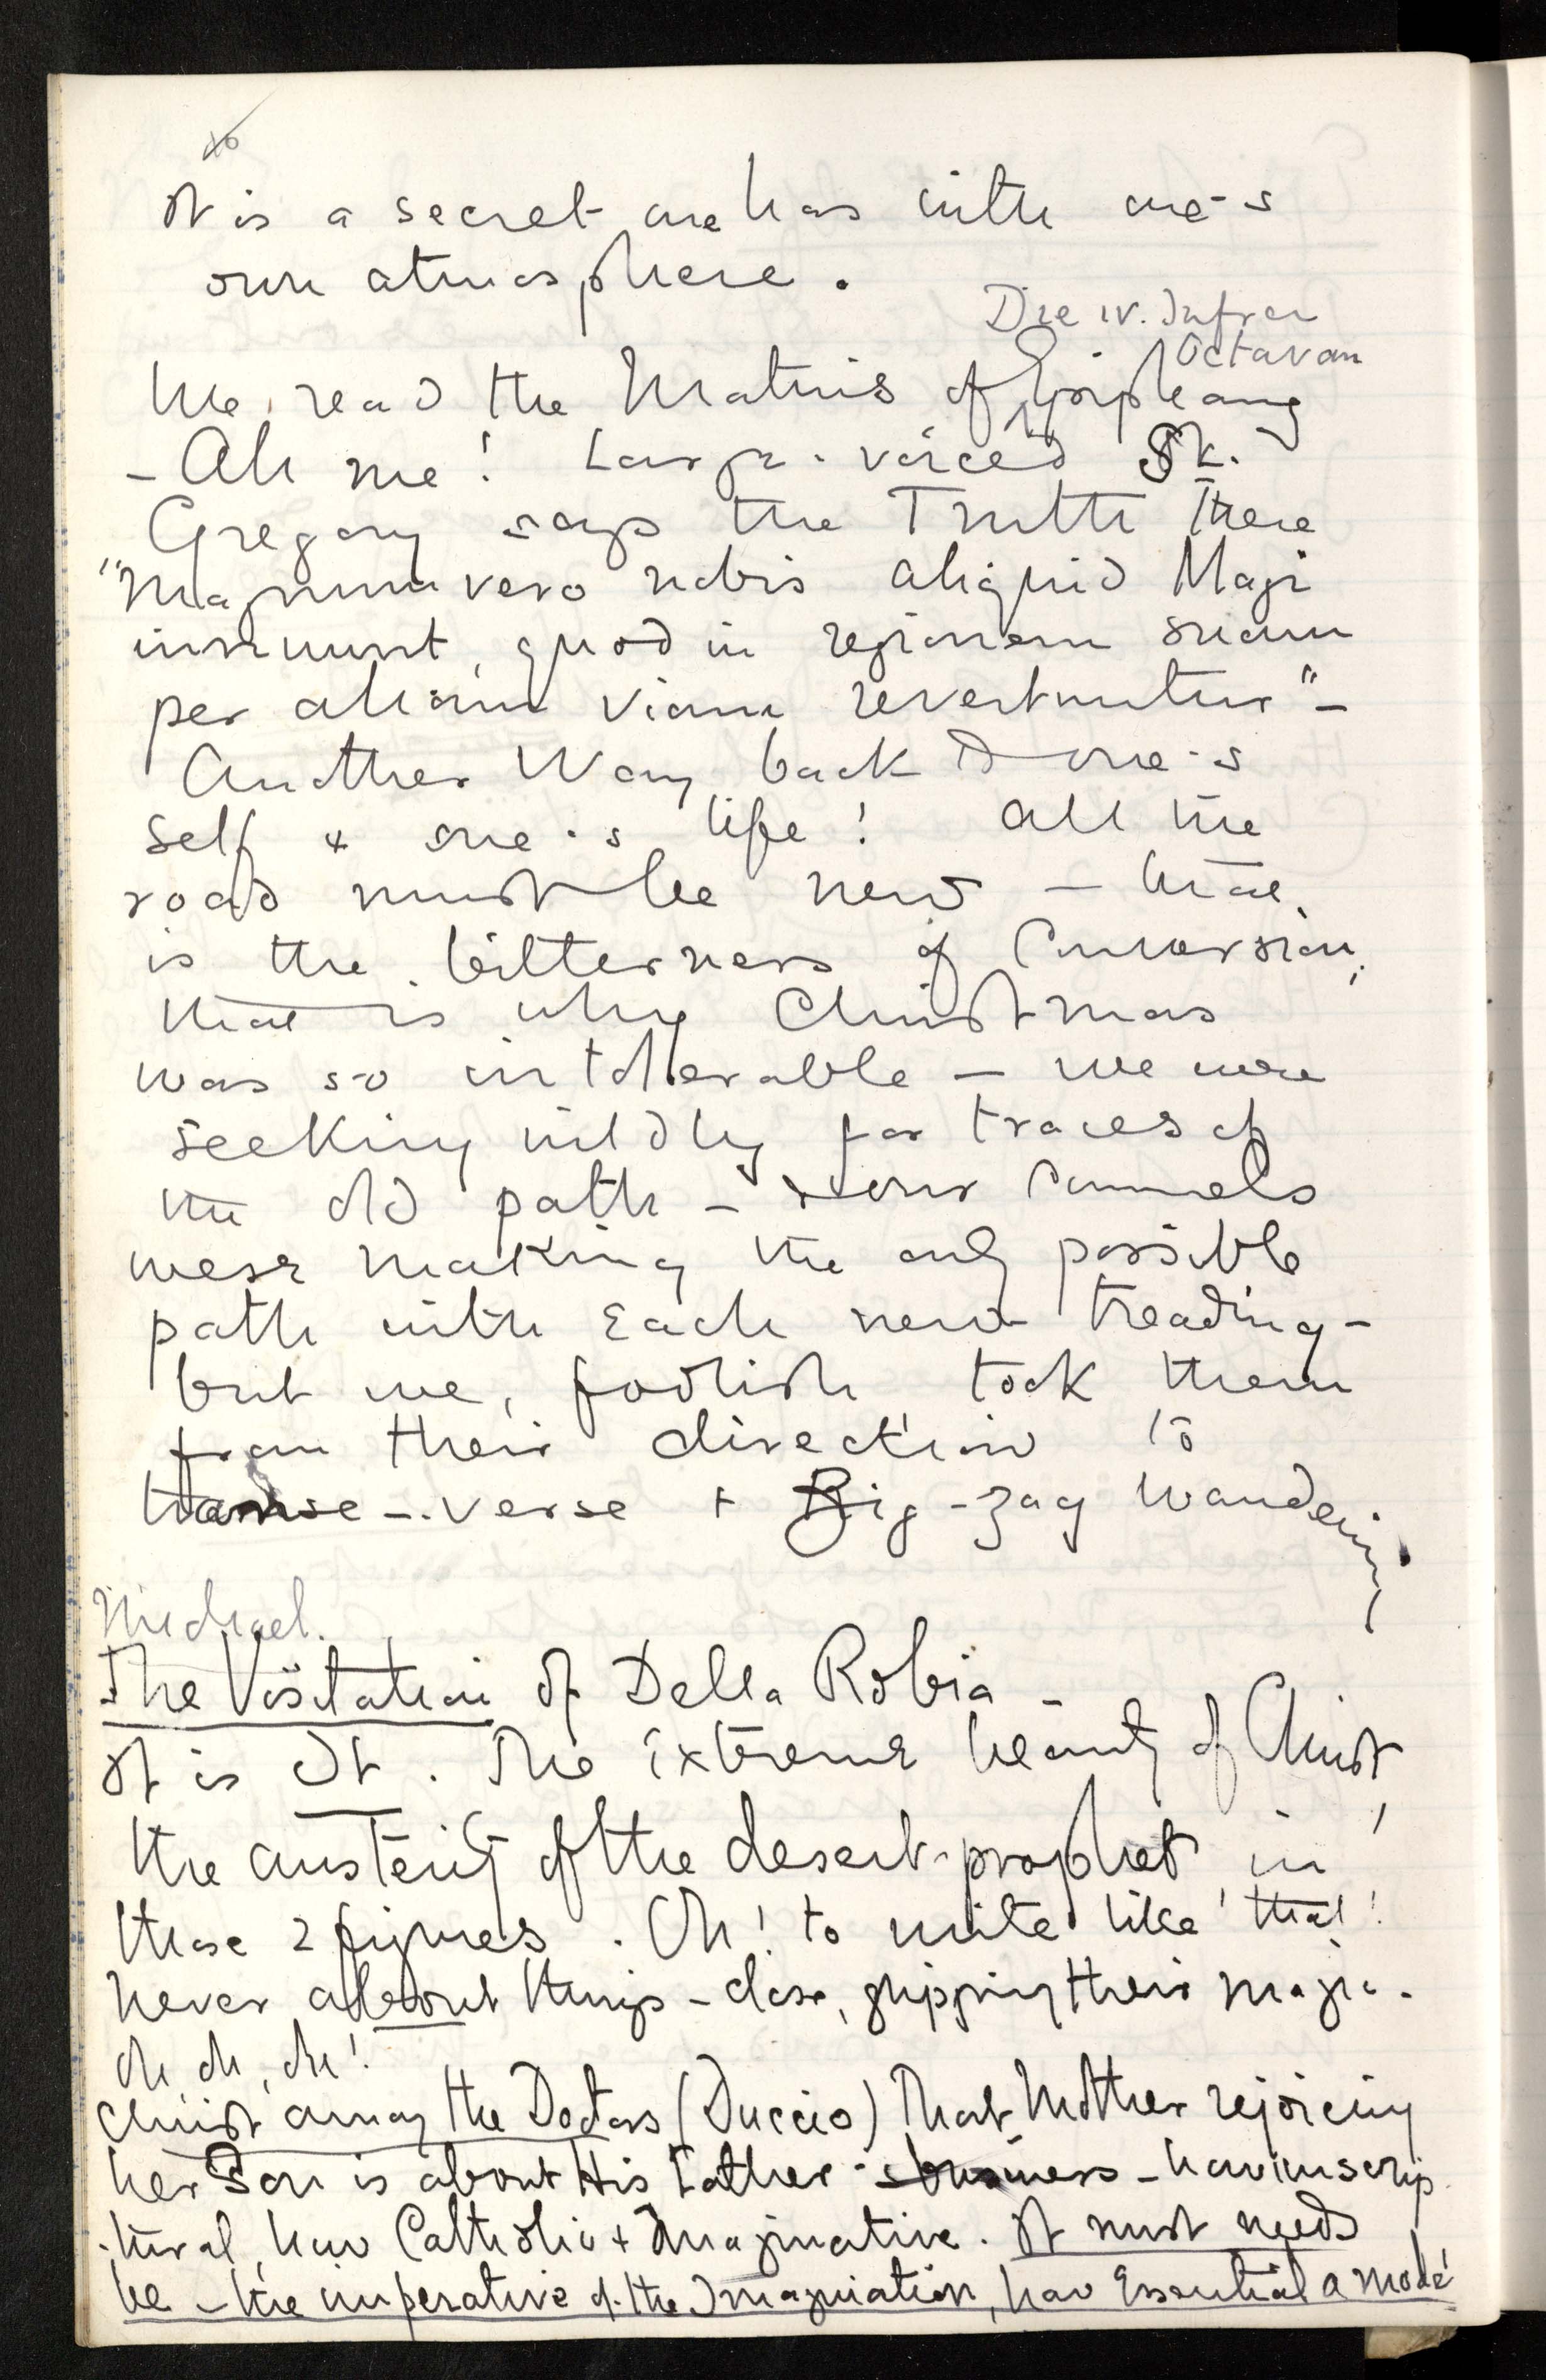 It is a secret one has with one's
own atmosphere.
Die IV. Infra
Octavam
We read the Matins of Epiphany
- Ah me! Large-voiced St.
Gregory says the Truth there
"Magnum vero nobis aliquid Magi
innuunt, quod in regionem suam
per aliam viam revertuntur" -
Another Way back to one's
self & one's life! All the
road must be new - that
is the bitterness of Conversion,
that is why Christmas
was so intolerable - we were
seeking wildly for traces of
the old path - & our Cammels
were making the only possible
path with each new treading -
but we, foolish took them
from their direction to
transe-verse & Zig-zag wandering
Michael.
The Visitation of Della Robia -
It is It. The extreme beauty of Christ,
the austerity of the desert-prophet in
these 2 figures. Oh! to write like that!
never about things - close, gripping their magic.
Oh, oh, oh!
Christ among the Doctors (Duccio) That Mother rejoicing
her Son is about His Father's business - how unscrip-
-tural, how Catholic & Imaginative. It must needs
be - the imperative of the Imagination, how Essential a mode